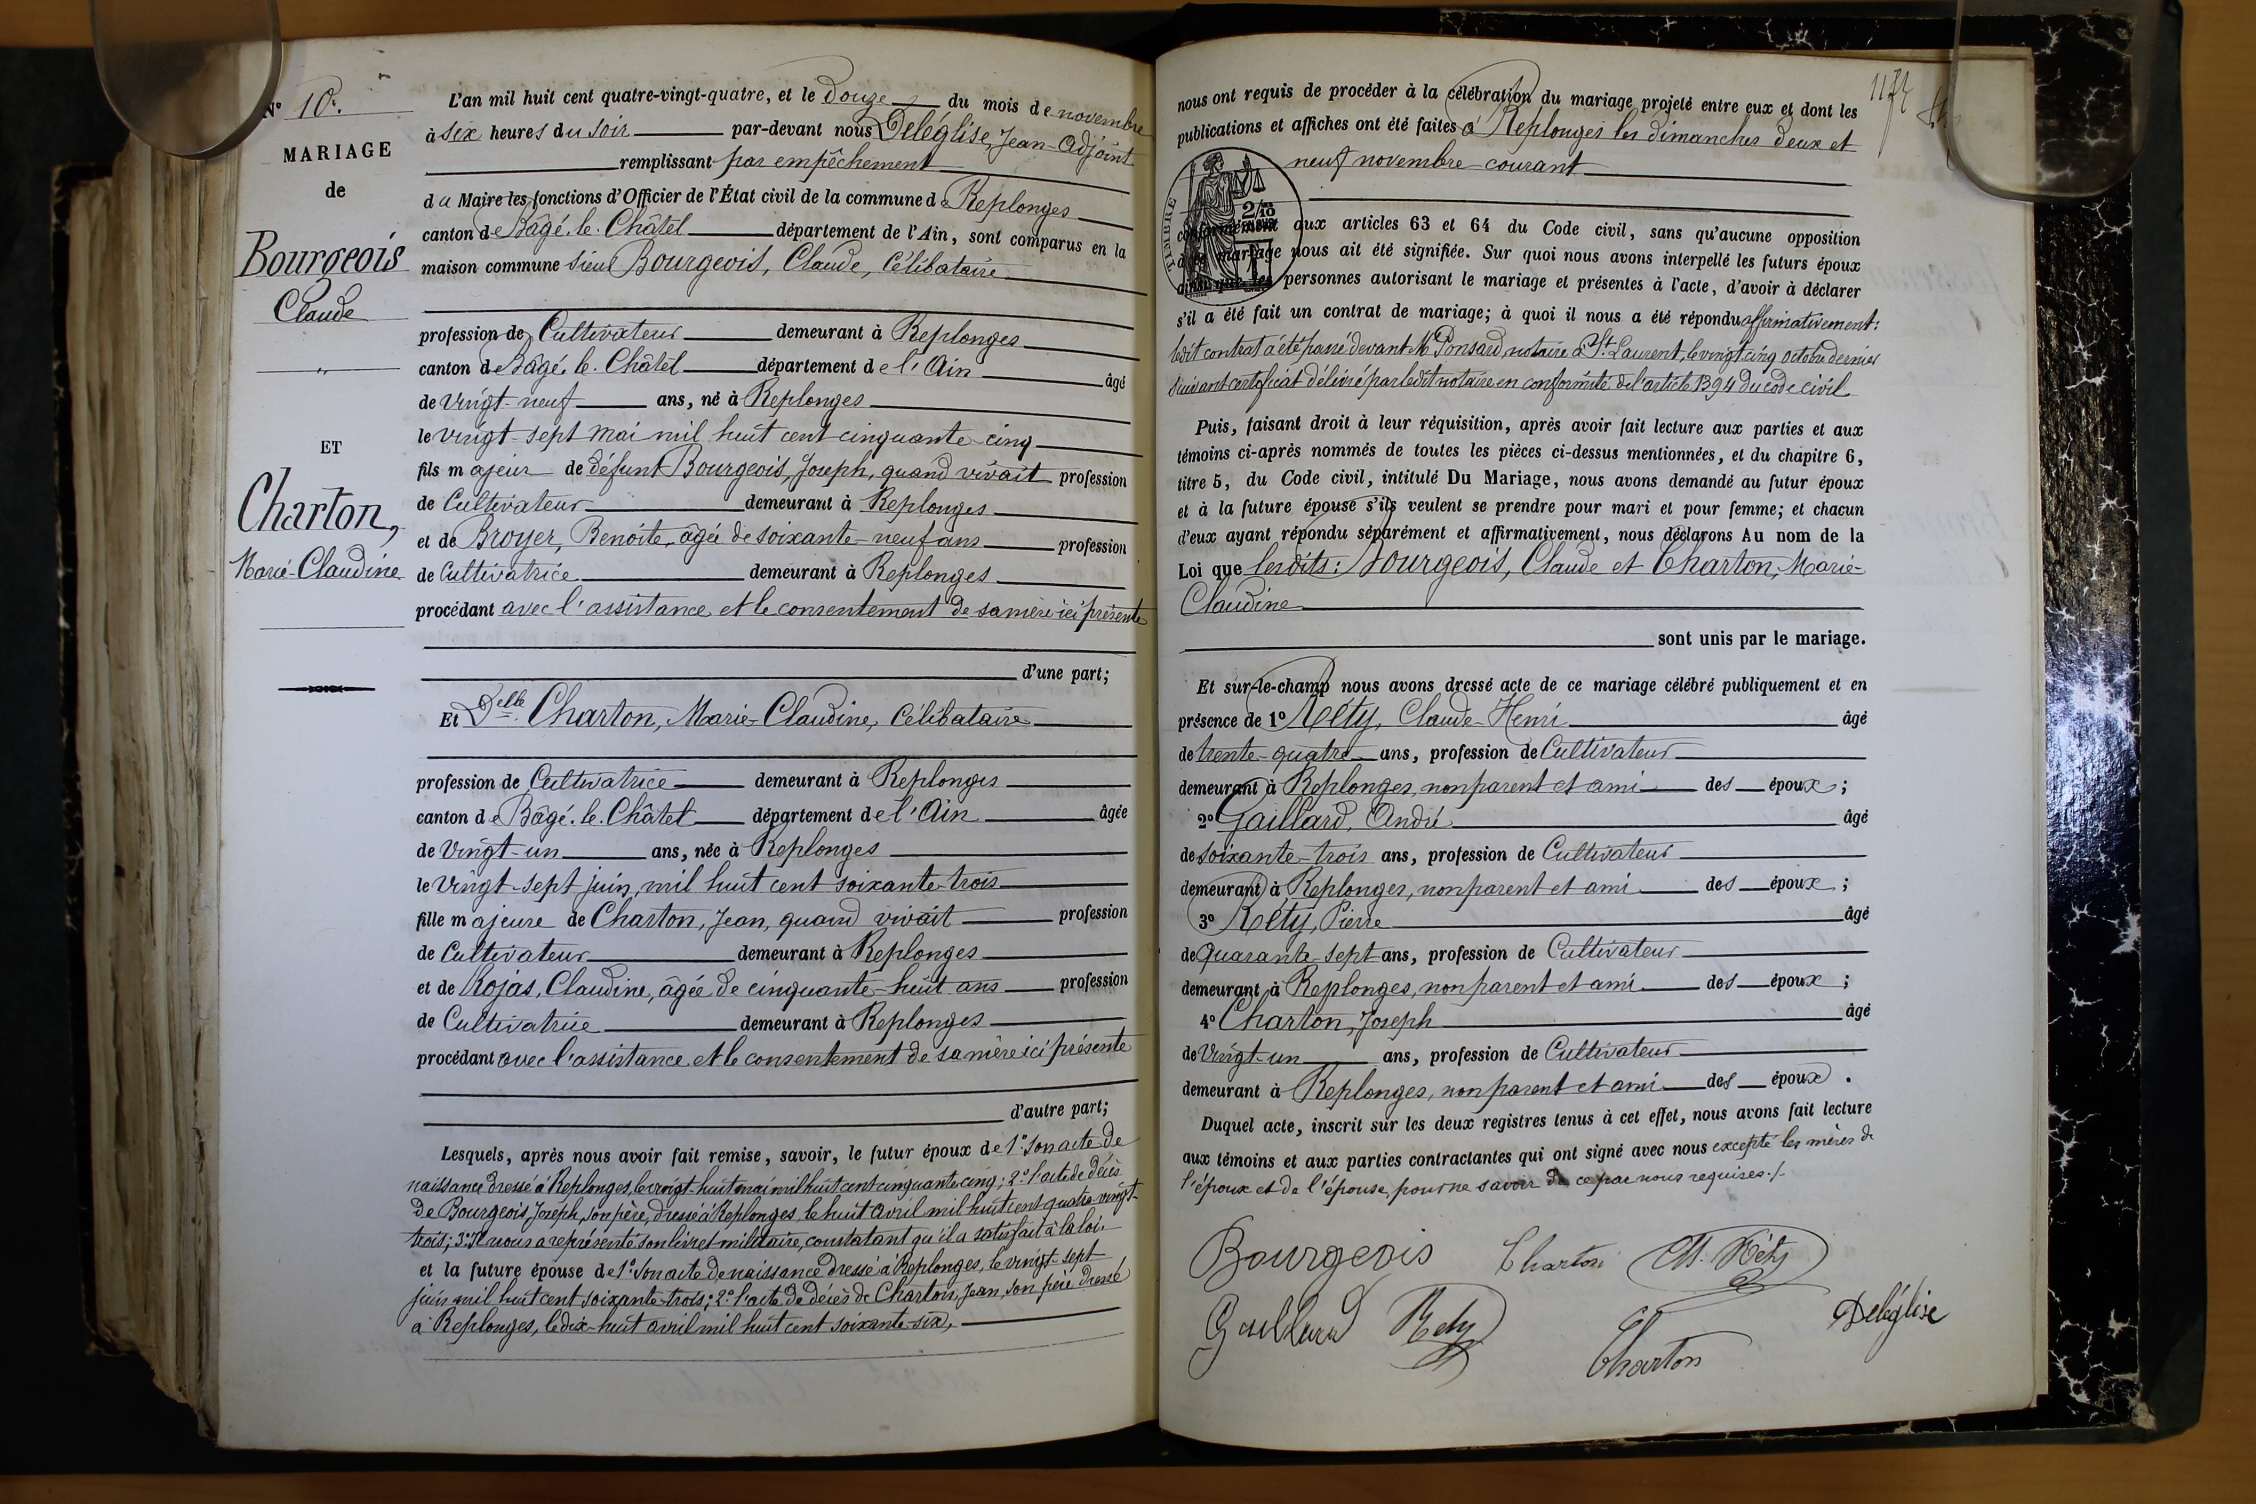 N° 10.
MARIAGE
de
Bourgeois
Claude
"
ET
Charton,
Marie-Claudine
L'an mil huit cent quatre-vingt-quatre, et le Douze du mois de novembre
à six heures du soir par-devant nous Deléglise, Jean-Adjoint
remplissant par empêchement
du Maire les fonctions d'Officier de l'État civil de la commune de Replonges
canton de Bâgé-le-Châtel département de l'Ain, sont comparus en la
maison commune sieur Bourgeois, Claude, Célibataire
profession de Cultivateur demeurant à Replonges
canton de Bâgé-le-Châtel département de l'Ain âgé
de vingt-neuf ans, né à Replonges
le vingt-sept mai mil huit cent cinquante-cinq
fils majeur de défunt Bourgeois, Joseph, quand vivait profession
de Cultivateur demeurant à Replonges
et de Broyer, Benoite, âgée de soixante-neuf ans profession
de Cultivatrice demeurant à Replonges
procédant avec l'assistance et le consentement de sa mère ici présente
d'une part;
Et Delle Charton, Marie-Claudine, Célibataire
profession de Cultivatrice demeurant à Replonges
canton de Bâgé-le-Châtel département de l'Ain âgée
de vingt-un ans, née à Replonges
le vingt-sept juin, mil huit cent soixante-trois
fille majeure de Charton, Jean, quand vivait profession
de Cultivateur demeurant à Replonges
et de Rojas, Claudine, âgée de cinquante-huit ans profession
de Cultivatrice demeurant à Replonges
procédant avec l'assistance et le consentement de sa mère ici présente
d'autre part;
Lesquels, après nous avoir fait remise, savoir, le futur époux de 1° son acte de
naissance dressé à Replonges, le vingt-huit mai mil huit cent cinquante cinq; 2° l'acte de décès
de Bourgeois, Joseph, son père, dressé à Replonges, le huit avril mil huit cent quatre-vingt-
trois; 3° Il nous a représenté son livret militaire, constatant qu'il a satisfait à la loi.
et la future épouse de 1° son acte de naissance dressé à Replonges, le vingt-sept
juin mil huit cent soixante-trois; 2° l'acte de décès de Charton, Jean, son père dressé
à Replonges, le dix-huit avril mil huit cent soixante-six,
nous ont requis de procéder à la célébration du mariage projeté entre eux et dont les
publications et affiches ont été faites à Replonges les dimanches deux et
neuf novembre courant
TIMBRE
2/10
conformément aux articles 63 et 64 du Code civil, sans qu'aucune opposition
à ce mariage nous ait été signifiée. Sur quoi nous avons interpellé les futurs époux
ainsi que les personnes autorisant le mariage et présentes à l'acte, d'avoir à déclarer
s'il a été fait un contrat de mariage; à quoi il nous a été répondu affirmativement:
ledit contrat a été passé devant Me Ponsard, notaire à St Laurent, le vingt-cinq octobre dernier
suivant certificat délivré par ledit notaire en conformité de l'article 1394 du code civil
Puis, faisant droit à leur réquisition, après avoir fait lecture aux parties et aux
témoins ci-après nommés de toutes les pièces ci-dessus mentionnées, et du chapitre 6,
titre 5, du Code civil, intitulé Du Mariage, nous avons demandé au futur époux
et à la future épouse s'ils veulent se prendre pour mari et pour femme; et chacun
d'eux ayant répondu séparément et affirmativement, nous déclarons Au nom de la
Loi que lesdits: Bourgeois, Claude et Charton, Marie-
Claudine
sont unis par le mariage.
Et sur-le-champ nous avons dressé acte de ce mariage célébré publiquement et en
présence de 1° Réty, Claude-Henri âgé
de trente-quatre ans, profession de Cultivateur
demeurant à Replonges, non parent et ami des époux;
2° Gaillard, André âgé
de soixante-trois ans, profession de Cultivateur
demeurant à Replonges, non parent et ami des époux;
3° Réty, Pierre âgé
de quarante-sept ans, profession de Cultivateur
demeurant à Replonges, non parent et ami des époux;
4° Charton, Joseph âgé
de vingt-un ans, profession de Cultivateur
demeurant à Replonges, non parent et ami des époux.
Duquel acte, inscrit sur les deux registres tenus à cet effet, nous avons fait lecture
aux témoins et aux parties contractantes qui ont signé avec nous excepté les mères de
l'époux et de l'épouse, pour ne savoir de ce par nous requises./.
Bourgeois Charton Réty
Gaillard Rety Charton Deléglise